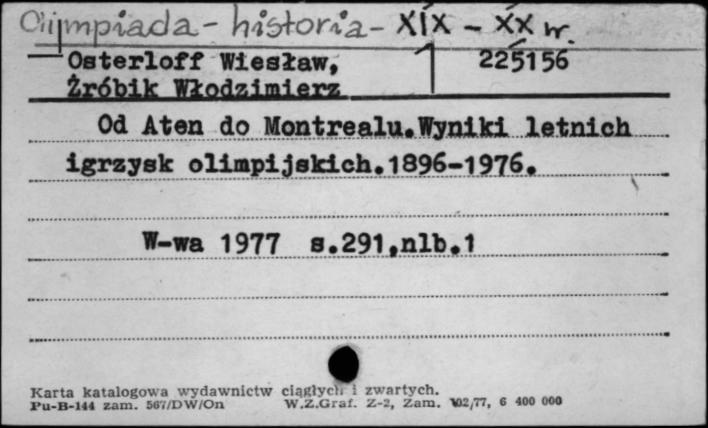 Olimpiada - historia - XIX - XX w.
Osterloff Wiesław, 225156
Źróbik Włodzimierz
Od Aten do Montrealu.Wyniki letnich
igrzysk olimpijskich.1896-1976.
W-wa 1977 s.291,nlb.1
Karta katalogowa wydawnictw ciągłych i zwartych.
Pu-B-144 zam. 567/DW/On W.Z.Graf. Z-2, Zam. 102/77, 6 400 000